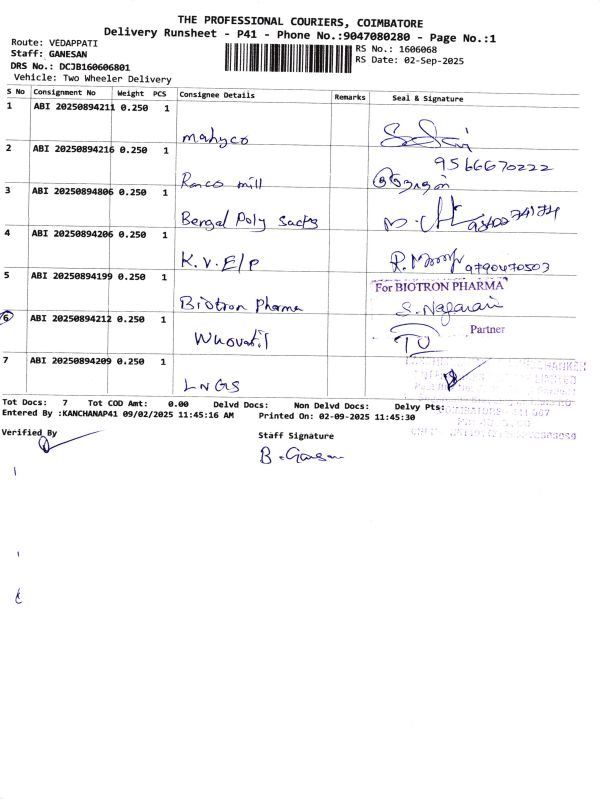 THE PROFESSIONAL COURIERS, COIMBATORE
Delivery Runsheet - P41 - Phone No.:9047080280 - Page No.:1
Route: VEDAPPATI
RS No.: 1606068
Staff: GANESAN
RS Date: 02-Sep-2025
DRS No.: DCJB160606801
Vehicle: Two Wheeler Delivery
S No Consignment No Weight PCS Consignee Details Remarks Seal & Signature
1 ABI 20250894211 0.250 1
mahyco
2 ABI 20250894216 0.250 1
9566670222
mill
3 ABI 20250894806 0.250 1
Bengal Poly Sacks
4 ABI 20250894206 0.250 1
K.V.E/P
9790470503
5 ABI 20250894199 0.250 1
For BIOTRON PHARMA
Biotron Pharma
S. Nagarani
6 ABI 20250894212 0.250 1
Partner
7 ABI 20250894209 0.250 1
LNGS
Tot Docs: 7 Tot COD Amt: 0.00 Delvd Docs: Non Delvd Docs: Delvy Pts:
Entered By :KANCHANAP41 09/02/2025 11:45:16 AM Printed On: 02-09-2025 11:45:30
Verified By
Staff Signature
B. Ganesan